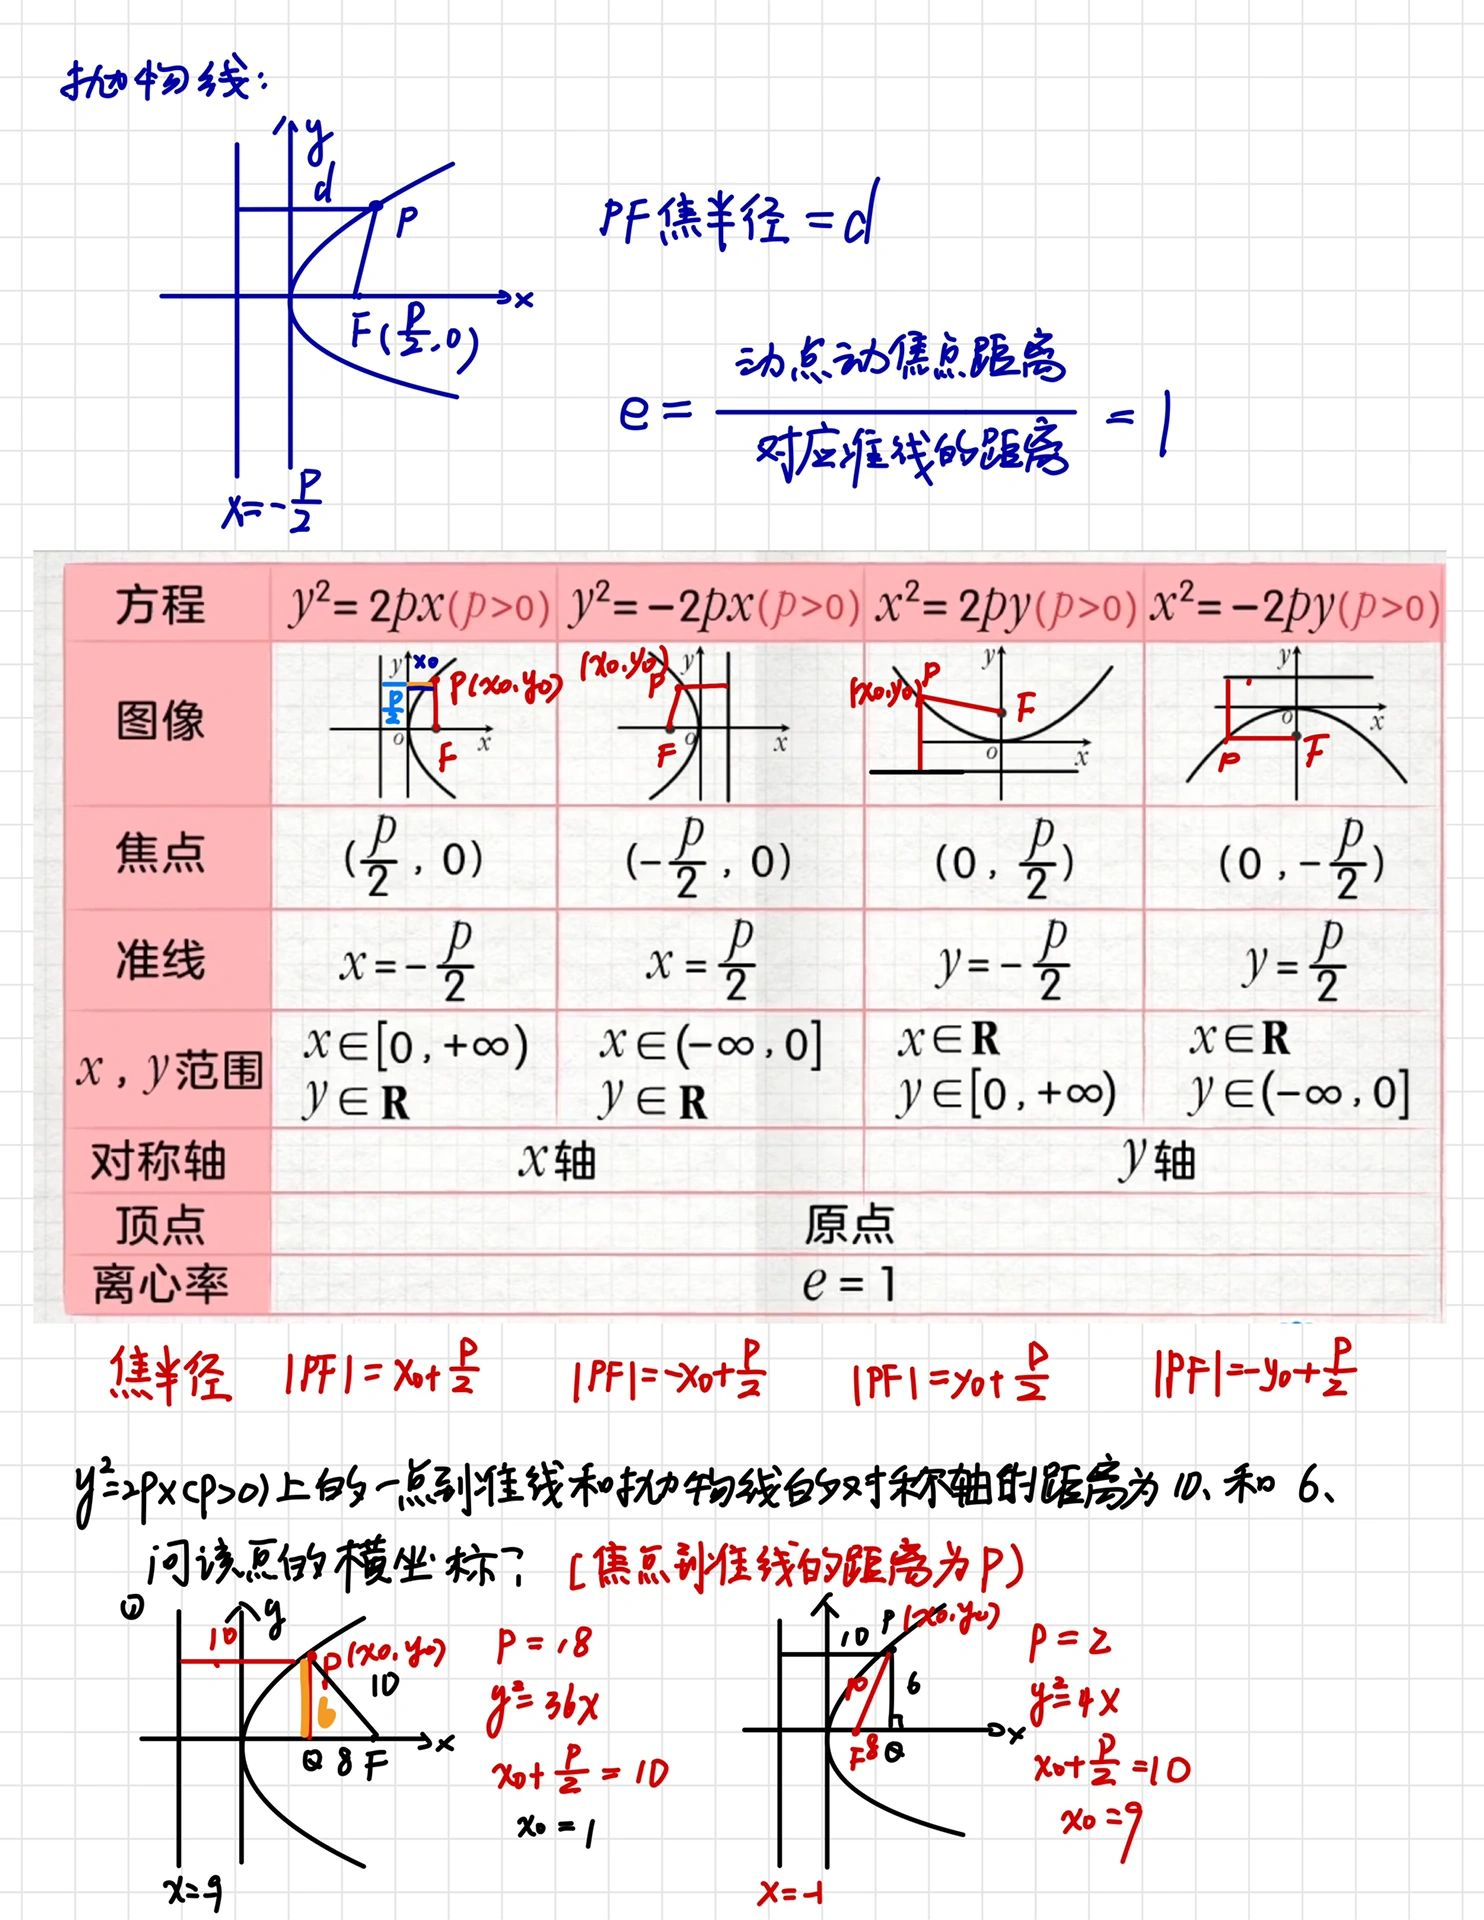 抛物线:
y
d
P
PF焦半径 = d
x
F(p/2, 0)
e = 动点动焦点距离/对应准线的距离 = 1
x=-p/2
方程 y²= 2px(p>0) y²= -2px(p>0) x²= 2py(p>0) x²= -2py(p>0)
图像
y x₀ P(x₀,y₀) p/2 o F x
(x₀,y₀) P y F o x
(x₀,y₀) P y F o x
y o x P F
焦点 (p/2, 0) (-p/2, 0) (0, p/2) (0, -p/2)
准线 x=-p/2 x=p/2 y=-p/2 y=p/2
x, y范围 x∈[0, +∞) x∈(-∞, 0] x∈R x∈R
y∈R y∈R y∈[0, +∞) y∈(-∞, 0]
对称轴 x轴 y轴
顶点 原点
离心率 e = 1
焦半径 |PF|=x₀+p/2 |PF|=-x₀+p/2 |PF|=y₀+p/2 |PF|=-y₀+p/2
y²=2px(p>0)上的一点到准线和抛物线的对称轴的距离为10、和 6、
问该点的横坐标? (焦点到准线的距离为p)
①
10 y P(x₀,y₀) 10 6 Q 8 F x
x=-9
P=18
y²=36x
x₀+p/2=10
x₀=1
10 P (x₀,y₀) 10 6 F 8 Q x
x=-1
P=2
y²=4x
x₀+p/2=10
x₀=9